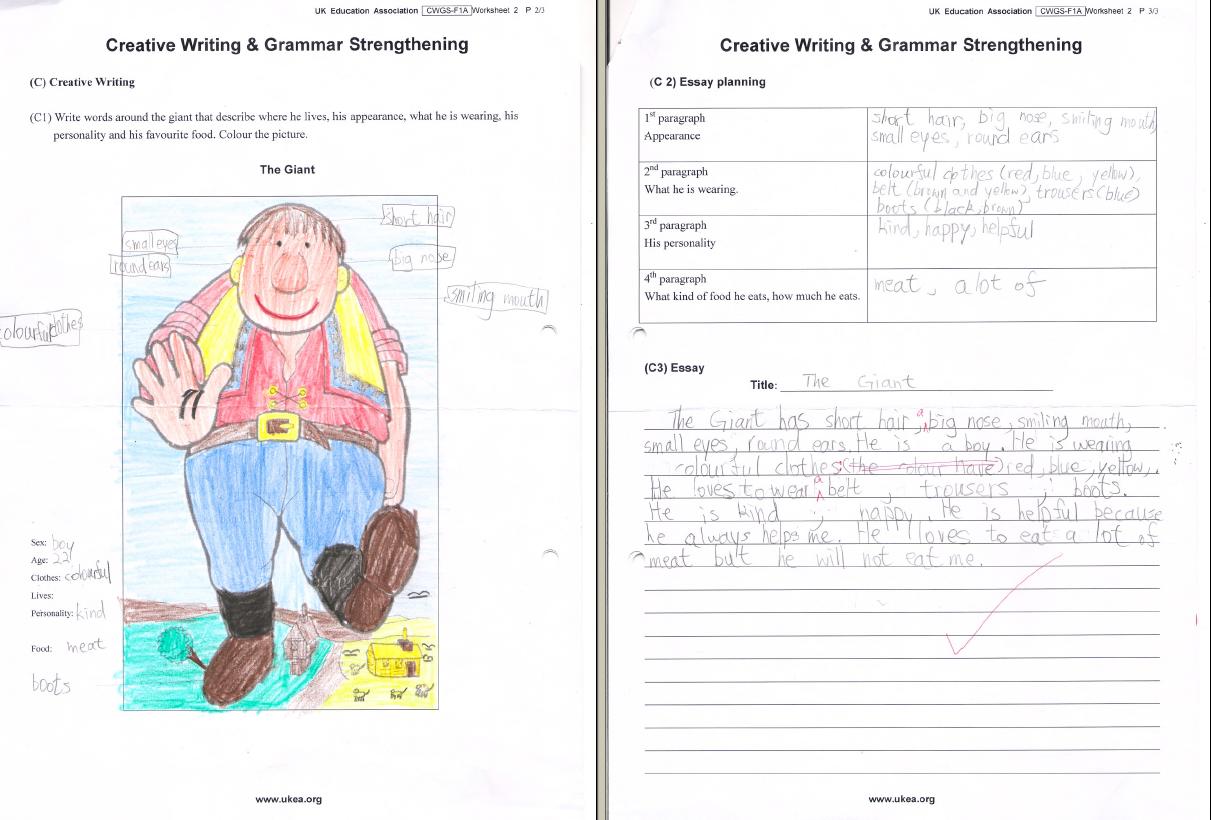 UK Education Association CWGS-F1A Worksheet 2 P 2/3
Creative Writing & Grammar Strengthening
(C) Creative Writing
(C1) Write words around the giant that describe where he lives, his appearance, what he is wearing, his
personality and his favourite food. Colour the picture.
The Giant
short hair
small eyes
round ears
big nose
smiling mouth
colourful clothes
Sex: boy
Age: 22
Clothes: colourful
Lives:
Personality: kind
Food: meat
boots
www.ukea.org
UK Education Association CWGS-F1A Worksheet 2 P 3/3
Creative Writing & Grammar Strengthening
(C 2) Essay planning
1st paragraph
Appearance
short hair, big nose, smiling mouth,
small eyes, round ears
2nd paragraph
What he is wearing.
colourful clothes (red, blue, yellow),
belt (brown and yellow), trousers (blue)
boots (black, brown)
3rd paragraph
His personality
kind, happy, helpful
4th paragraph
What kind of food he eats, how much he eats.
meat, a lot of
(C3) Essay
Title: The Giant
The Giant has short hair, a big nose, smiling mouth,
small eyes, round ears. He is a boy. He is wearing
colourful clothes (the colour have) red, blue, yellow,.
He loves to wear a belt, trousers, boots.
He is kind, happy. He is helpful because
he always helps me. He loves to eat a lot of
meat but he will not eat me.
www.ukea.org